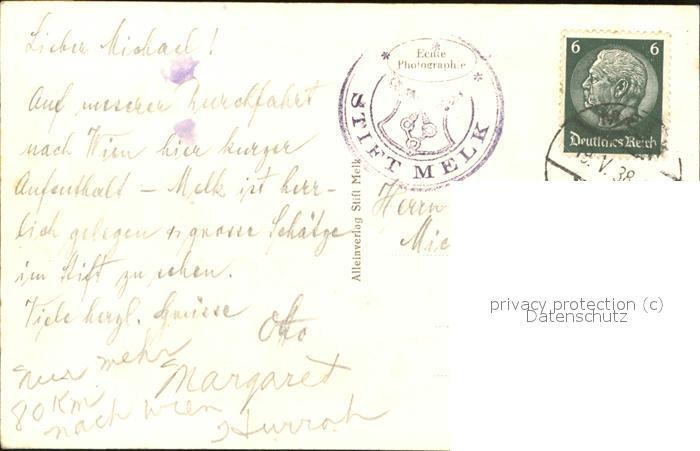 Lieber Michael!
Auf unserer Durchfahrt
nach Wien hier kurzer
Aufenthalt – Melk ist herr-
lich gelegen & grosse Schätze
im Stift zu sehen.
Viele herzl. Grüsse
Otto
Nur mehr
Margaret
80 Km
nach Wien
Hurrah
Echte
Photographie
STIFT MELK
Alleinverlag Stift Melk
Herrn
Mic
6 6
Deutsches Reich
19.V.38
privacy protection (c)
Datenschutz